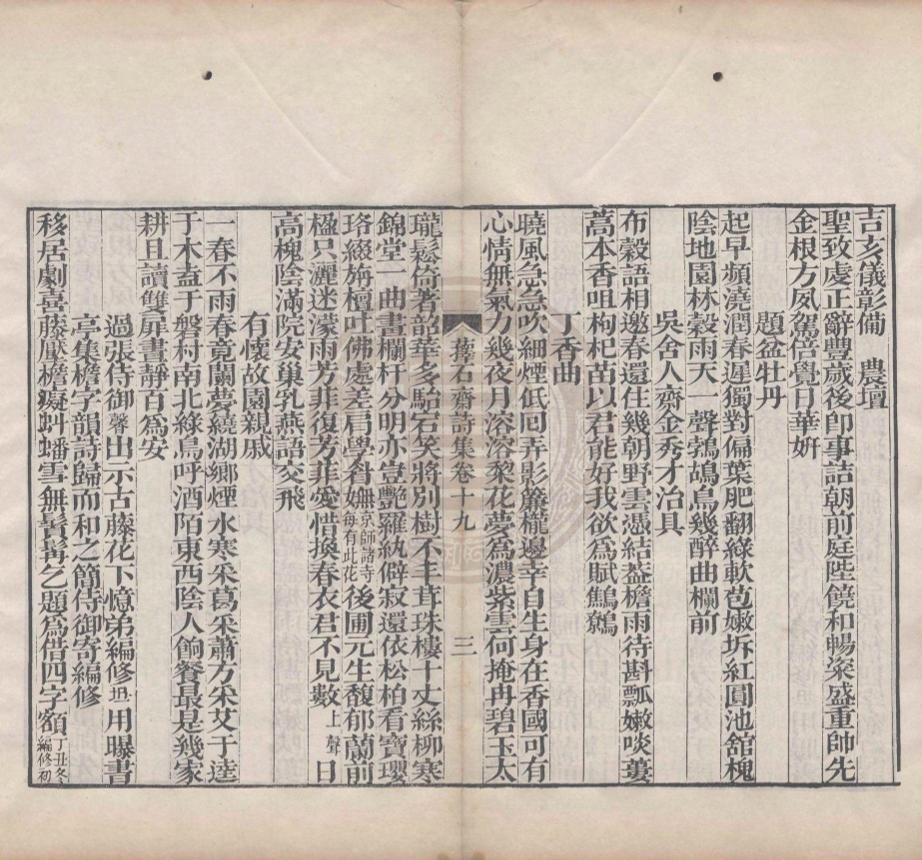 吉亥儀彰備　農壇
聖致虔正辭豐歲後卽事詰朝前庭陛饒和暢粢盛重帥先
金根方夙駕倍覺日華妍
題盆牡丹
起早頻澆潤春遲獨對偏葉肥翻綠軟苞嫩坼紅圓池舘槐
陰地園林穀雨天一聲鵓鴣鳥幾醉曲欄前
吳舍人齋金秀才治具
布穀語相邀春還住幾朝野雲憑結葢檐雨待斟瓢嫩啖蔓
蒿本香咀枸杞苗以君能好我欲爲賦鷦鷯
丁香曲
曉風急急吹細煙低回弄影簾櫳邊幸自生身在香國可有
心情無氣力幾夜月溶溶棃花夢爲濃紫雲何掩冉碧玉太
蘀石齋詩集卷十九　三
瓏鬆倚著韶華多駘宕笑將別樹不丰茸珠樓十丈絲柳寒
錦堂一曲畫欄杆分明亦豈艷羅紈僻寂還依松柏看寶瓔
珞綴旃檀吐佛處差肩學眷嫵京師諸寺每有此花後圃元生馥郁蘭前
楹只灑迷濛雨芳菲復芳菲愛惜換春衣君不見數上聲日
高槐陰滿院安巢乳燕語交飛
有懷故園親戚
一春不雨春竟闌夢繞湖鄉煙水寒采葛采蕭方采艾于逵
于木盍于磐村南北綠鳥呼酒陌東西陰人餉餐最是幾家
耕且讀雙扉晝靜百爲安
過張侍御馨出示古藤花下憶弟編修坦用曝書
亭集檐字韻詩歸而和之簡侍御寄編修
移居劇喜藤壓檐癡虯蟠雪無鬢髯乞題爲借四字額丁丑冬編修初